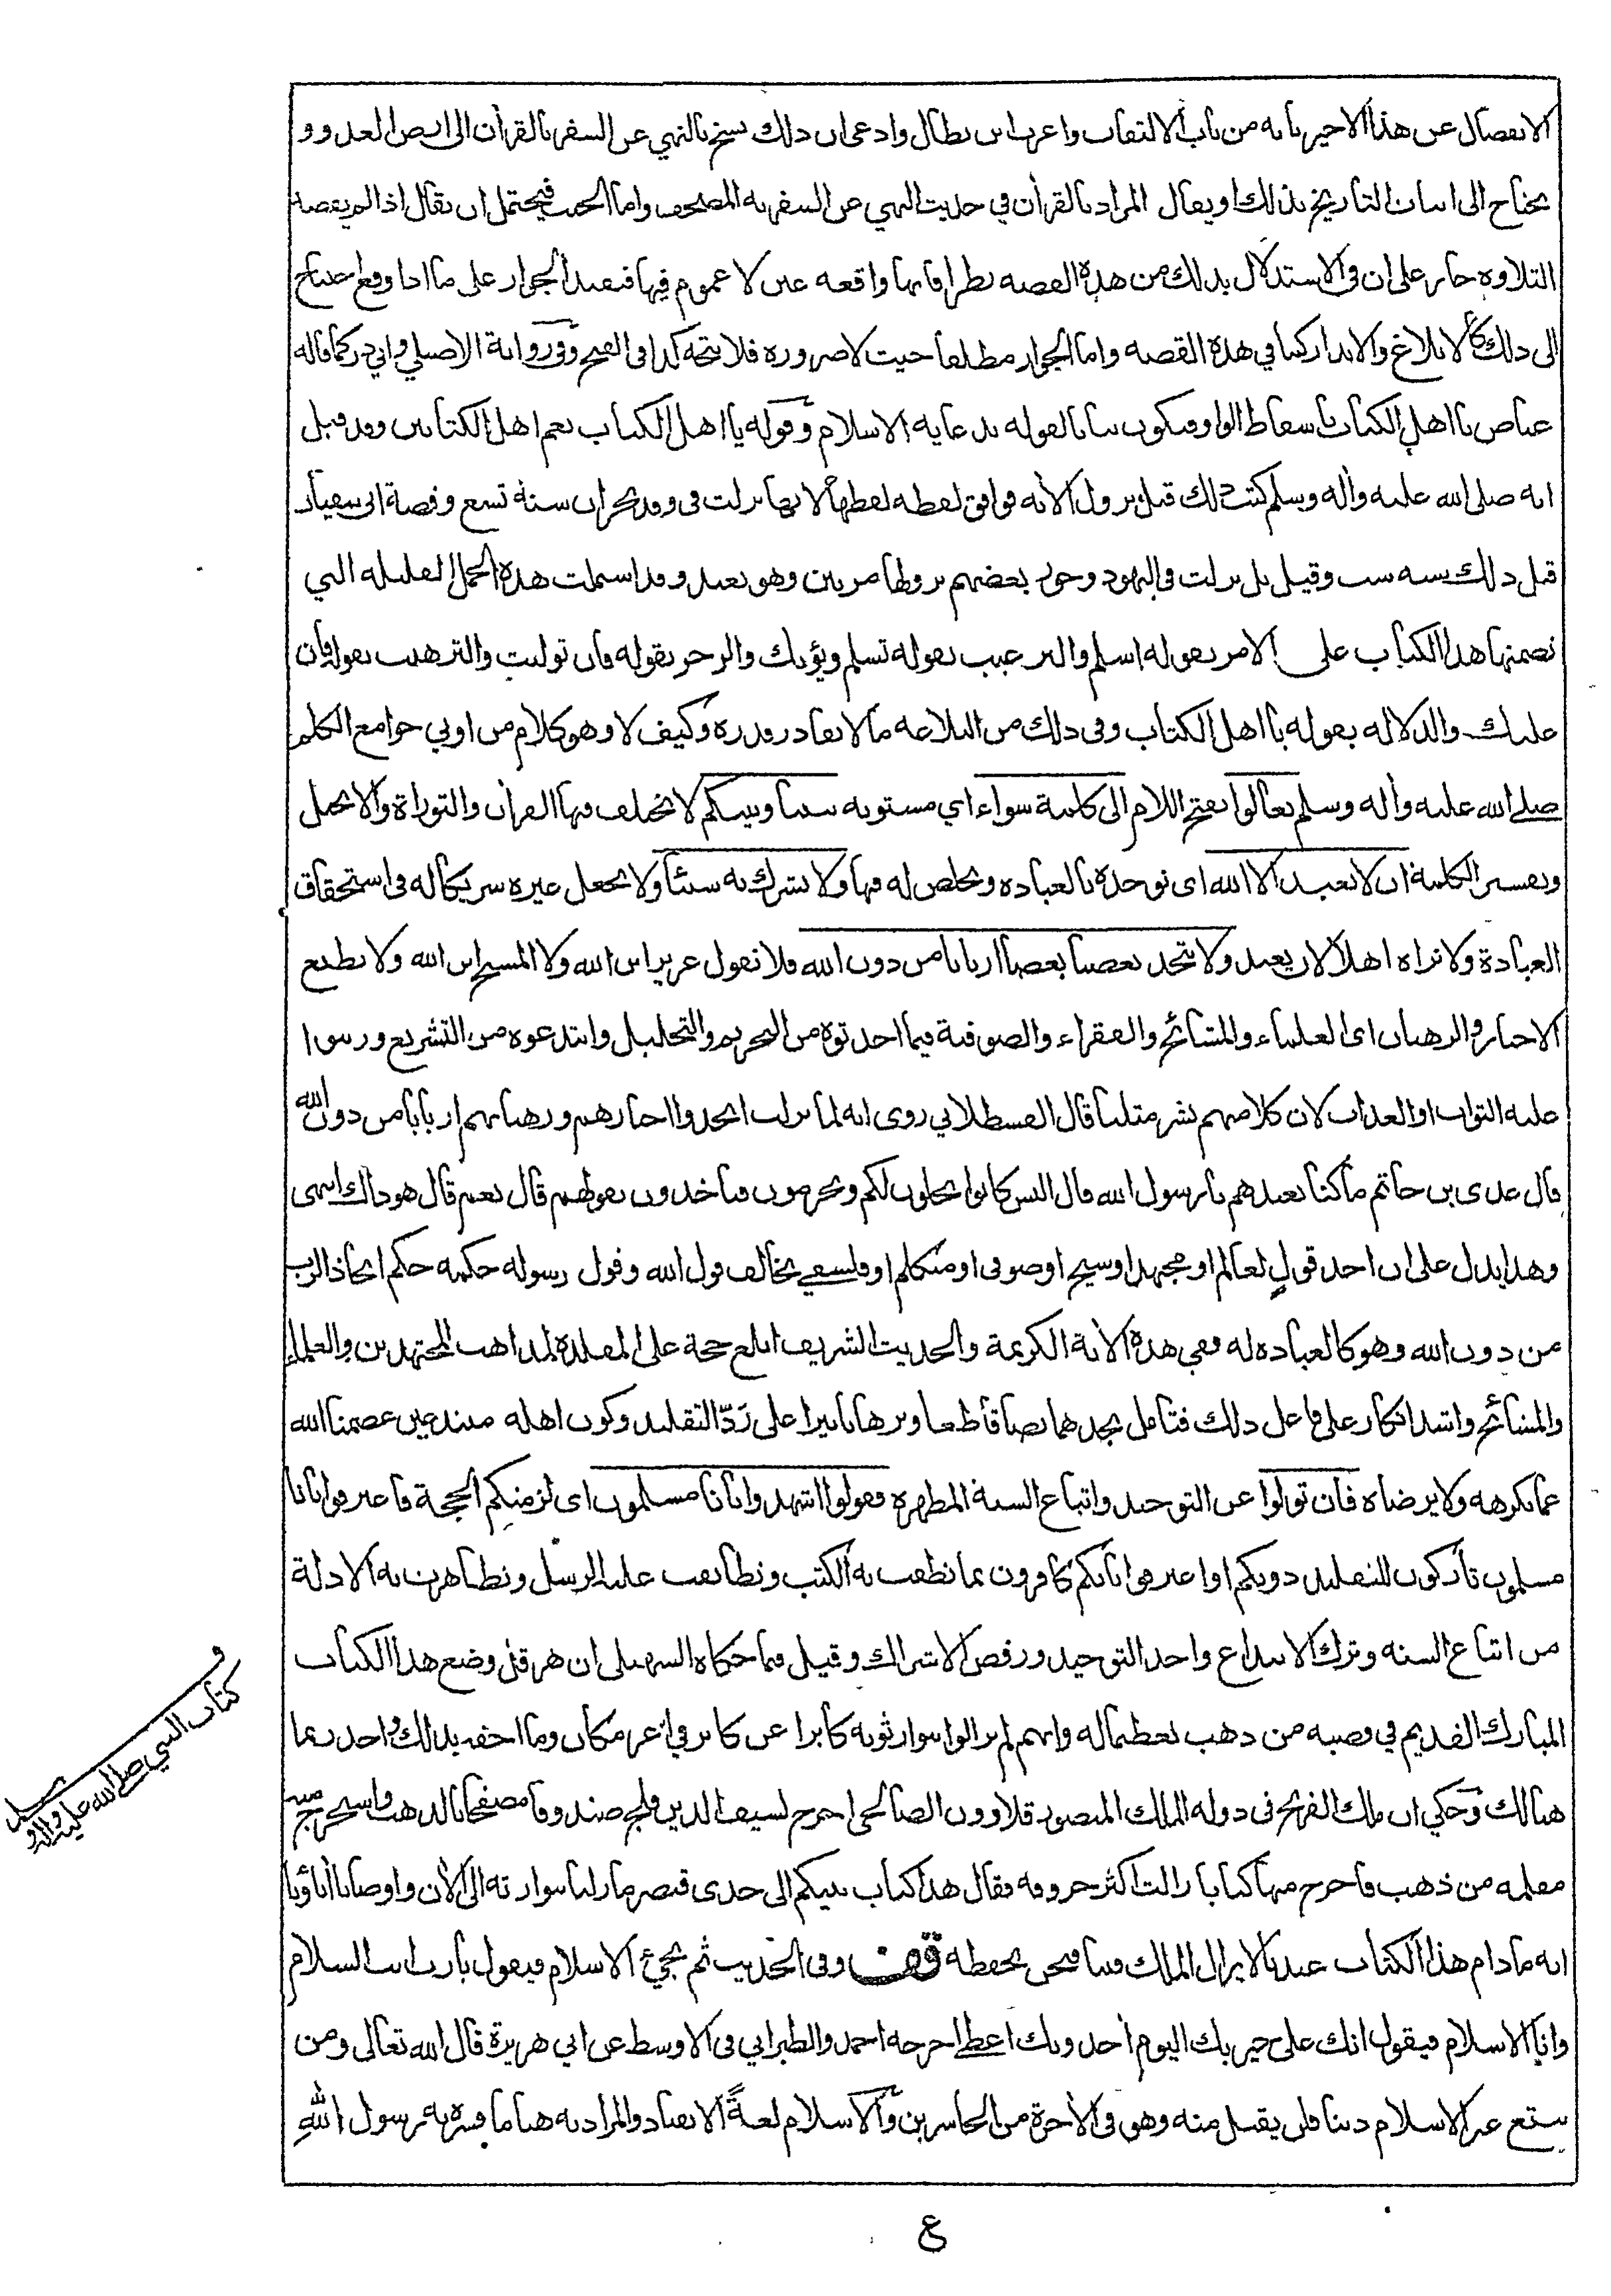 الانفصال عن هذا الاخير بانه من باب الالتفات واغرب ابن بطال وادعى ان ذلك نسخ بالنهي عن السفر بالقرآن الى ارض العدو و
يحتاج الى اثبات التاريخ بذلك او يقال المراد بالقرآن في حديث النهي عن السفر به المصحف واما الجنب فيحتمل ان يقال اذا لم يقصد
التلاوه جاز على ان في الاستدلال بذلك من هذه القصه نظرا فانها واقعه عين لا عموم فيها فيقيد الجواز على ما اذا وقع احتياج
الى ذلك كالابلاغ والانذار كما في هذه القصه واما الجواز مطلقا حيث لا ضروره فلا يتجه كذا في الفتح وفي رواية الاصيلي وابي ذر كما قاله
عياض يا اهل الكتاب باسقاط الواو فيكون بيانا لقوله بدعاية الاسلام وقوله يا اهل الكتاب يعم اهل الكتابين وقد قيل
انه صلى الله عليه وآله وسلم كتب ذلك قبل نزول الآيه فوافق لفظه لفظها لانها نزلت في وفد نجران سنة تسع وقصة ابي سفيان
قبل ذلك سنه ست وقيل بل نزلت في اليهود وجوز بعضهم نزولها مرتين وهو بعيد وقد اشتملت هذه الجمل القليله التي
تضمنها هذا الكتاب على الامر بقوله اسلم والترغيب بقوله تسلم ويؤتك والزجر بقوله فان توليت والترهيب بقوله فان
عليك والدلاله بقوله يا اهل الكتاب وفي ذلك من البلاغه ما لا يقادر قدره وكيف لا وهو كلام من اوتي جوامع الكلم
صلى الله عليه وآله وسلم تعالوا بفتح اللام الى كلمة سواء اي مستويه بيننا وبينكم لا يختلف فيها القرآن والتوراة والانجيل
وتفسير الكلمة ان لا نعبد الا الله اى نوحده بالعباده ونخلص له فيها ولا نشرك به شيئا ولا نجعل غيره شريكا له في استحقاق
العبادة ولا نراه اهلا لان يعبد ولا يتخذ بعضنا بعضا اربابا من دون الله فلا نقول عزير ابن الله ولا المسيح ابن الله ولا نطيع
الاحبار والرهبان اى العلماء والمشائخ والفقراء والصوفية فيما احدثوه من التحريم والتحليل وابتدعوه من التشريع ورسوا
عليه الثواب او العذاب لان كلامنهم بشر مثلنا قال القسطلاني روى انه لما نزلت اتخذوا احبارهم ورهبانهم اربابا من دون الله
قال عدى بن حاتم ما كنا نعبدهم يا رسول الله قال اليس كانوا يحلون لكم ويحرمون فتاخذون بقولهم قال نعم قال هو ذاك انتهى
وهذا يدل على ان اخذ قول لعالم او مجتهد او شيخ او صوفى او متكلم او فلسفي يخالف قول الله وقول رسوله حكمه حكم اتخاذ الرب
من دون الله وهو كالعباده له وفي هذه الآية الكريمة والحديث الشريف ابلغ حجة على المقلدة لمذاهب المجتهدين والعلماء
والمشائخ واشد انكار على فاعل ذلك فتامل تجدهما نصا قاطعا وبرهانا نيرا على رَدّ التقليد وكون اهله مبتدعين عصمنا الله
عما يكرهه ولا يرضاه فان تولوا عن التوحيد واتباع السنة المطهره فقولوا اشهدوا بانا مسلمون اى لزمتكم الحجة فاعترفوا بانا
مسلمون تاركون للتقليد دونكم او اعترفوا بانكم كافرون بما نطقت به الكتب وتطابقت عليه الرسل وتظاهرت به الادلة
من اتباع السنه وترك الابتداع واخذ التوحيد ورفض الاشراك وقيل فيما حكاه السهيلى ان هرقل وضع هذا الكتاب
المبارك القديم في قصبه من ذهب تعظيما له وانهم لم يزالوا يتوارثونه كابرا عن كابر في اعز مكان وما احقه بذلك واجدر بما
هنالك وحكي ان ملك الفرنج في دوله الملك المنصور قلاوون الصالحى اخرج لسيف الدين قلج صندوقا مصفحا بالذهب واستخرج منه
مقلمه من ذهب فاخرج منها كتابا زالت اكثر حروفه فقال هذا كتاب نبيكم الى جدى قيصر ما زلنا نتوارثه الى الآن واوصانا اباؤنا
انه ما دام هذا الكتاب عندنا لا يزال الملك فينا فنحن نحفظه قف وفى الحديث ثم يجئ الاسلام فيقول يا رب انت السلام
وانا الاسلام فيقول انك على خير بك اليوم آخذ وبك اعطي اخرجه احمد والطبراني في الاوسط عن ابي هريرة قال الله تعالى ومن
يبتغ غير الاسلام دينا فلن يقبل منه وهو في الآخرة من الخاسرين والاسلام لغةً الانقياد والمراد به هنا ما فسره به رسول الله
ف
كتاب النبي صلى الله عليه وآله وسلم
ع